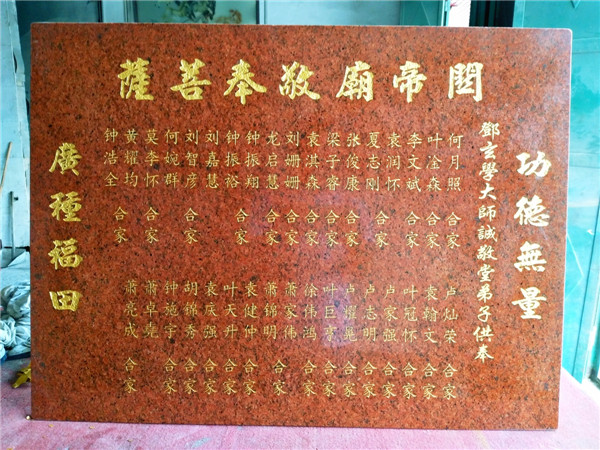 關帝廟敬奉菩薩
功德無量
鄧玄學大師誠敬堂弟子供奉
何月照 合家
叶淦森 合家
李文斌 合家
袁润怀
夏志刚 合家
张俊康 合家
梁子睿 合家
袁淇森 合家
刘姗姗 合家
龙启慧 合家
钟振翔
钟振裕 合家
刘嘉慧
刘智彦 合家
何婉群
莫李怀 合家
黄耀均 合家
钟浩全
卢灿荣 合家
袁翰文 合家
叶冠怀 合家
卢家强 合家
卢志明 合家
卢耀晃 合家
叶巨亮 合家
徐伟鸿 合家
萧家伟
萧锦明 合家
袁健仲 合家
叶天升 合家
袁庆强 合家
胡锦秀 合家
钟施宇 合家
萧卓尧
萧亮成 合家
廣種福田